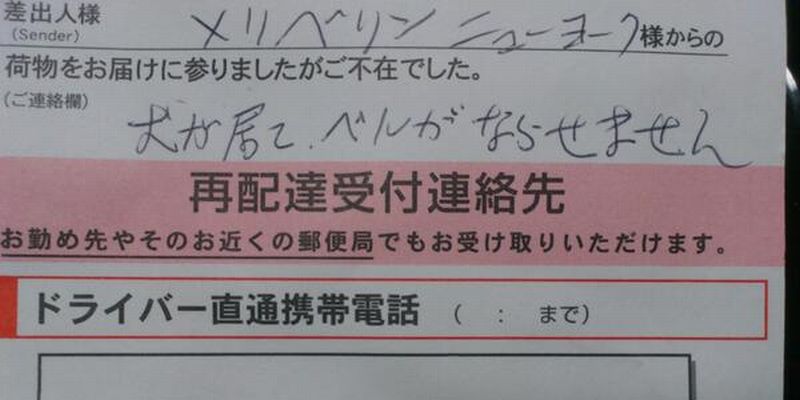 差出人様
(Sender)
メリベリン ニューヨーク様からの
荷物をお届けに参りましたがご不在でした。
(ご連絡欄)
犬が居て、ベルがならせません
再配達受付連絡先
お勤め先やそのお近くの郵便局でもお受け取りいただけます。
ドライバー直通携帯電話 ( : まで)